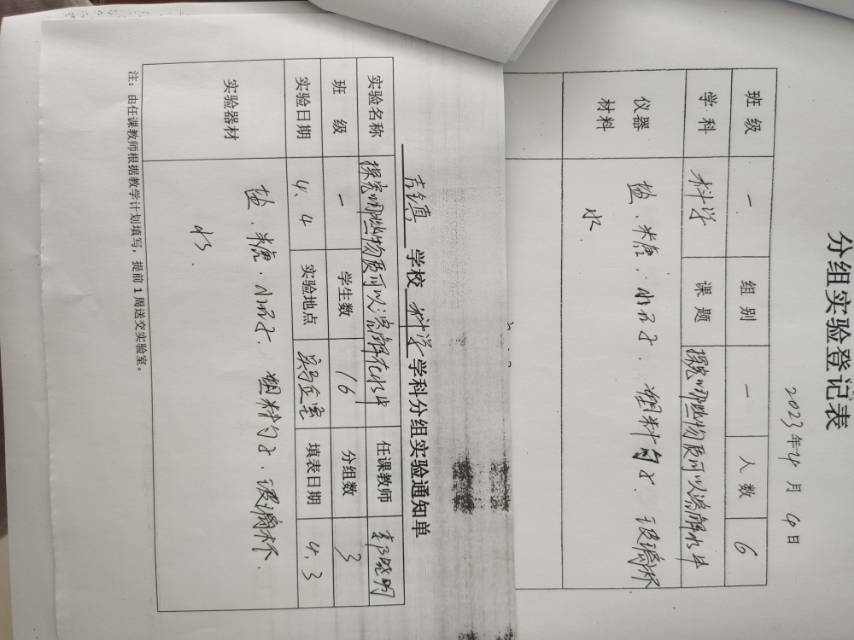 分组实验登记表
2023年4月4日
班级 一 组别 一 人数 6
学科 科学 课题 探究哪些物质可以溶解水中
仪器材料 盐、糖、小石子、塑料勺子、玻璃杯
水
学校 科学 学科分组实验通知单
实验名称 探究哪些物质可以溶解在水中 任课教师
班级 一 学生数 16 分组数 3
实验日期 4.4 实验地点 实验室 填表日期 4.3
实验器材 盐、糖、小石子、塑料勺子、玻璃杯、
水、
注：由任课教师根据教学计划填写，提前1周送交实验室。